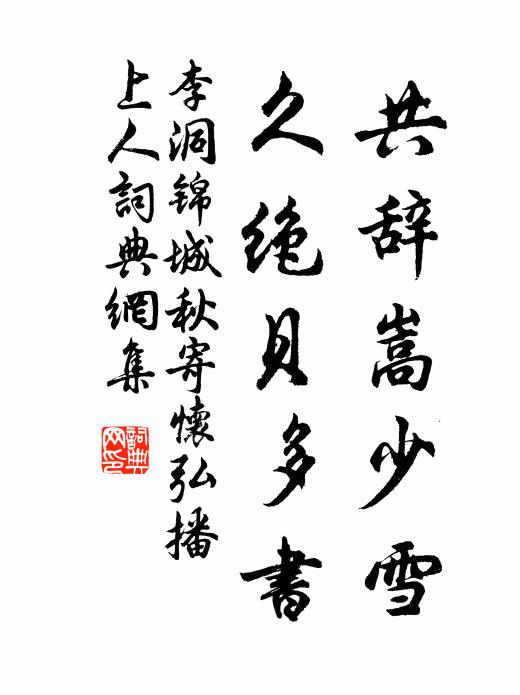 共辞嵩少雪
久绝貝多書
李洞锦城秋寄懷弘播
上人詞典網集
詞典网印